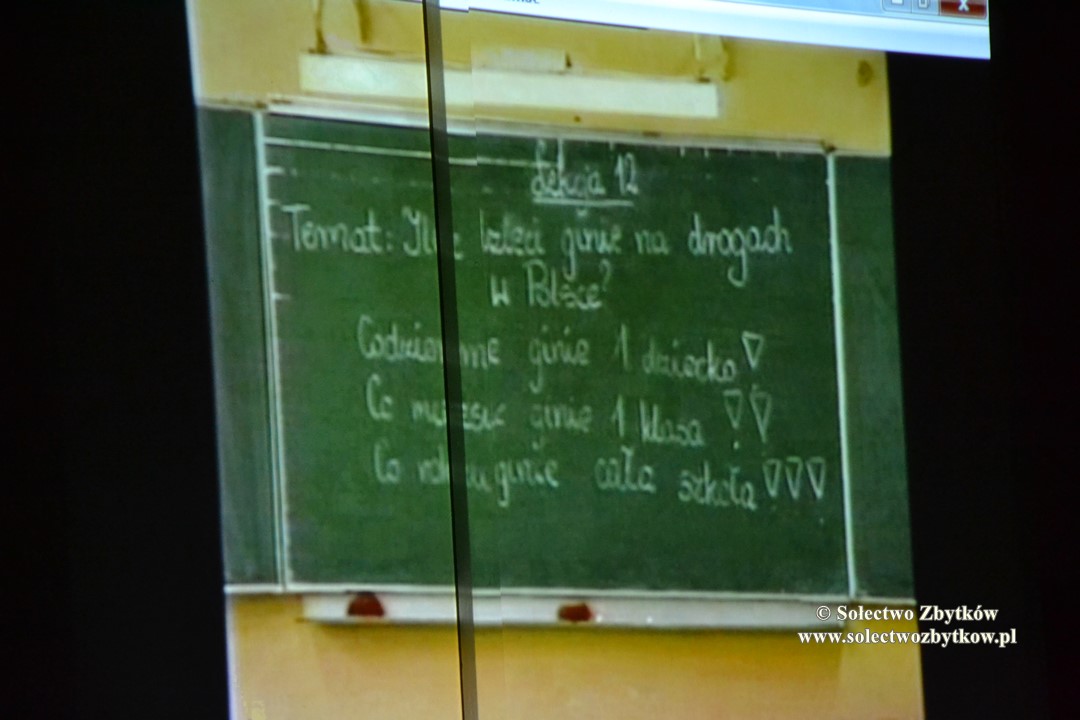 Lekcja 12
Temat: Ile dzieci ginie na drogach
w Polsce?
Codziennie ginie 1 dziecko!
Co miesiąc ginie 1 klasa !!
Co roku ginie cała szkoła!!!
© Sołectwo Zbytków
www.solectwozbytkow.pl